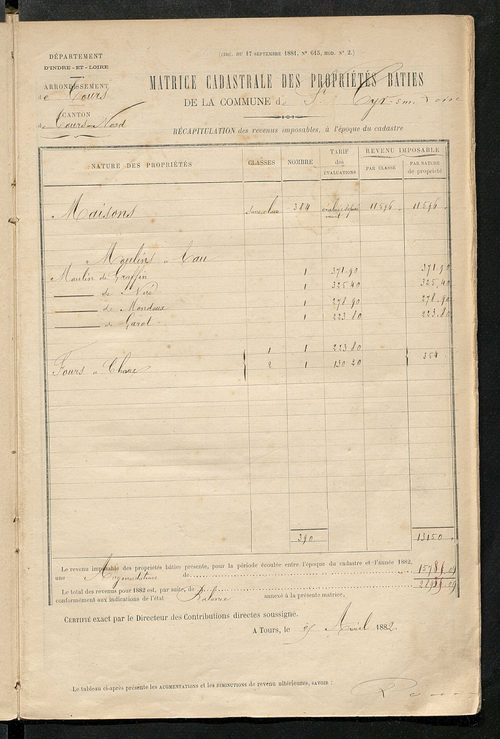 (CIRC. DU 17 SEPTEMBRE 1881, N° 615, MOD. N° 2.)
DÉPARTEMENT
D'INDRE-ET-LOIRE
ARRONDISSEMENT
de Tours
CANTON
de Tours Nord
MATRICE CADASTRALE DES PROPRIÉTÉS BÂTIES
DE LA COMMUNE de St Cyr-sur-Loire
RÉCAPITULATION des revenus imposables, à l'époque du cadastre
NATURE DES PROPRIÉTÉS CLASSES NOMBRE TARIF des ÉVALUATIONS REVENU IMPOSABLE
PAR CLASSE PAR NATURE de propriété
Maisons 384 11596 11596
Moulins à Eau
Moulin de 1 371.90 371.90
de 1 325.40 325.40
de 1 278.90 278.90
de 1 223.80 223.80
1 1 223.80
Fours à Chaux 2 1 130.20 354
390 13150
Le revenu imposable des propriétés bâties présente, pour la période écoulée entre l'époque du cadastre et l'année 1882,
une Augmentation de
Le total des revenus pour 1882 est, par suite, de
conformément aux indications de l'état annexé à la présente matrice,
CERTIFIÉ exact par le Directeur des Contributions directes soussigné.
A TOURS, le Avril 1882
Le tableau ci-après présente les AUGMENTATIONS et les DIMINUTIONS de revenu ultérieures, SAVOIR :